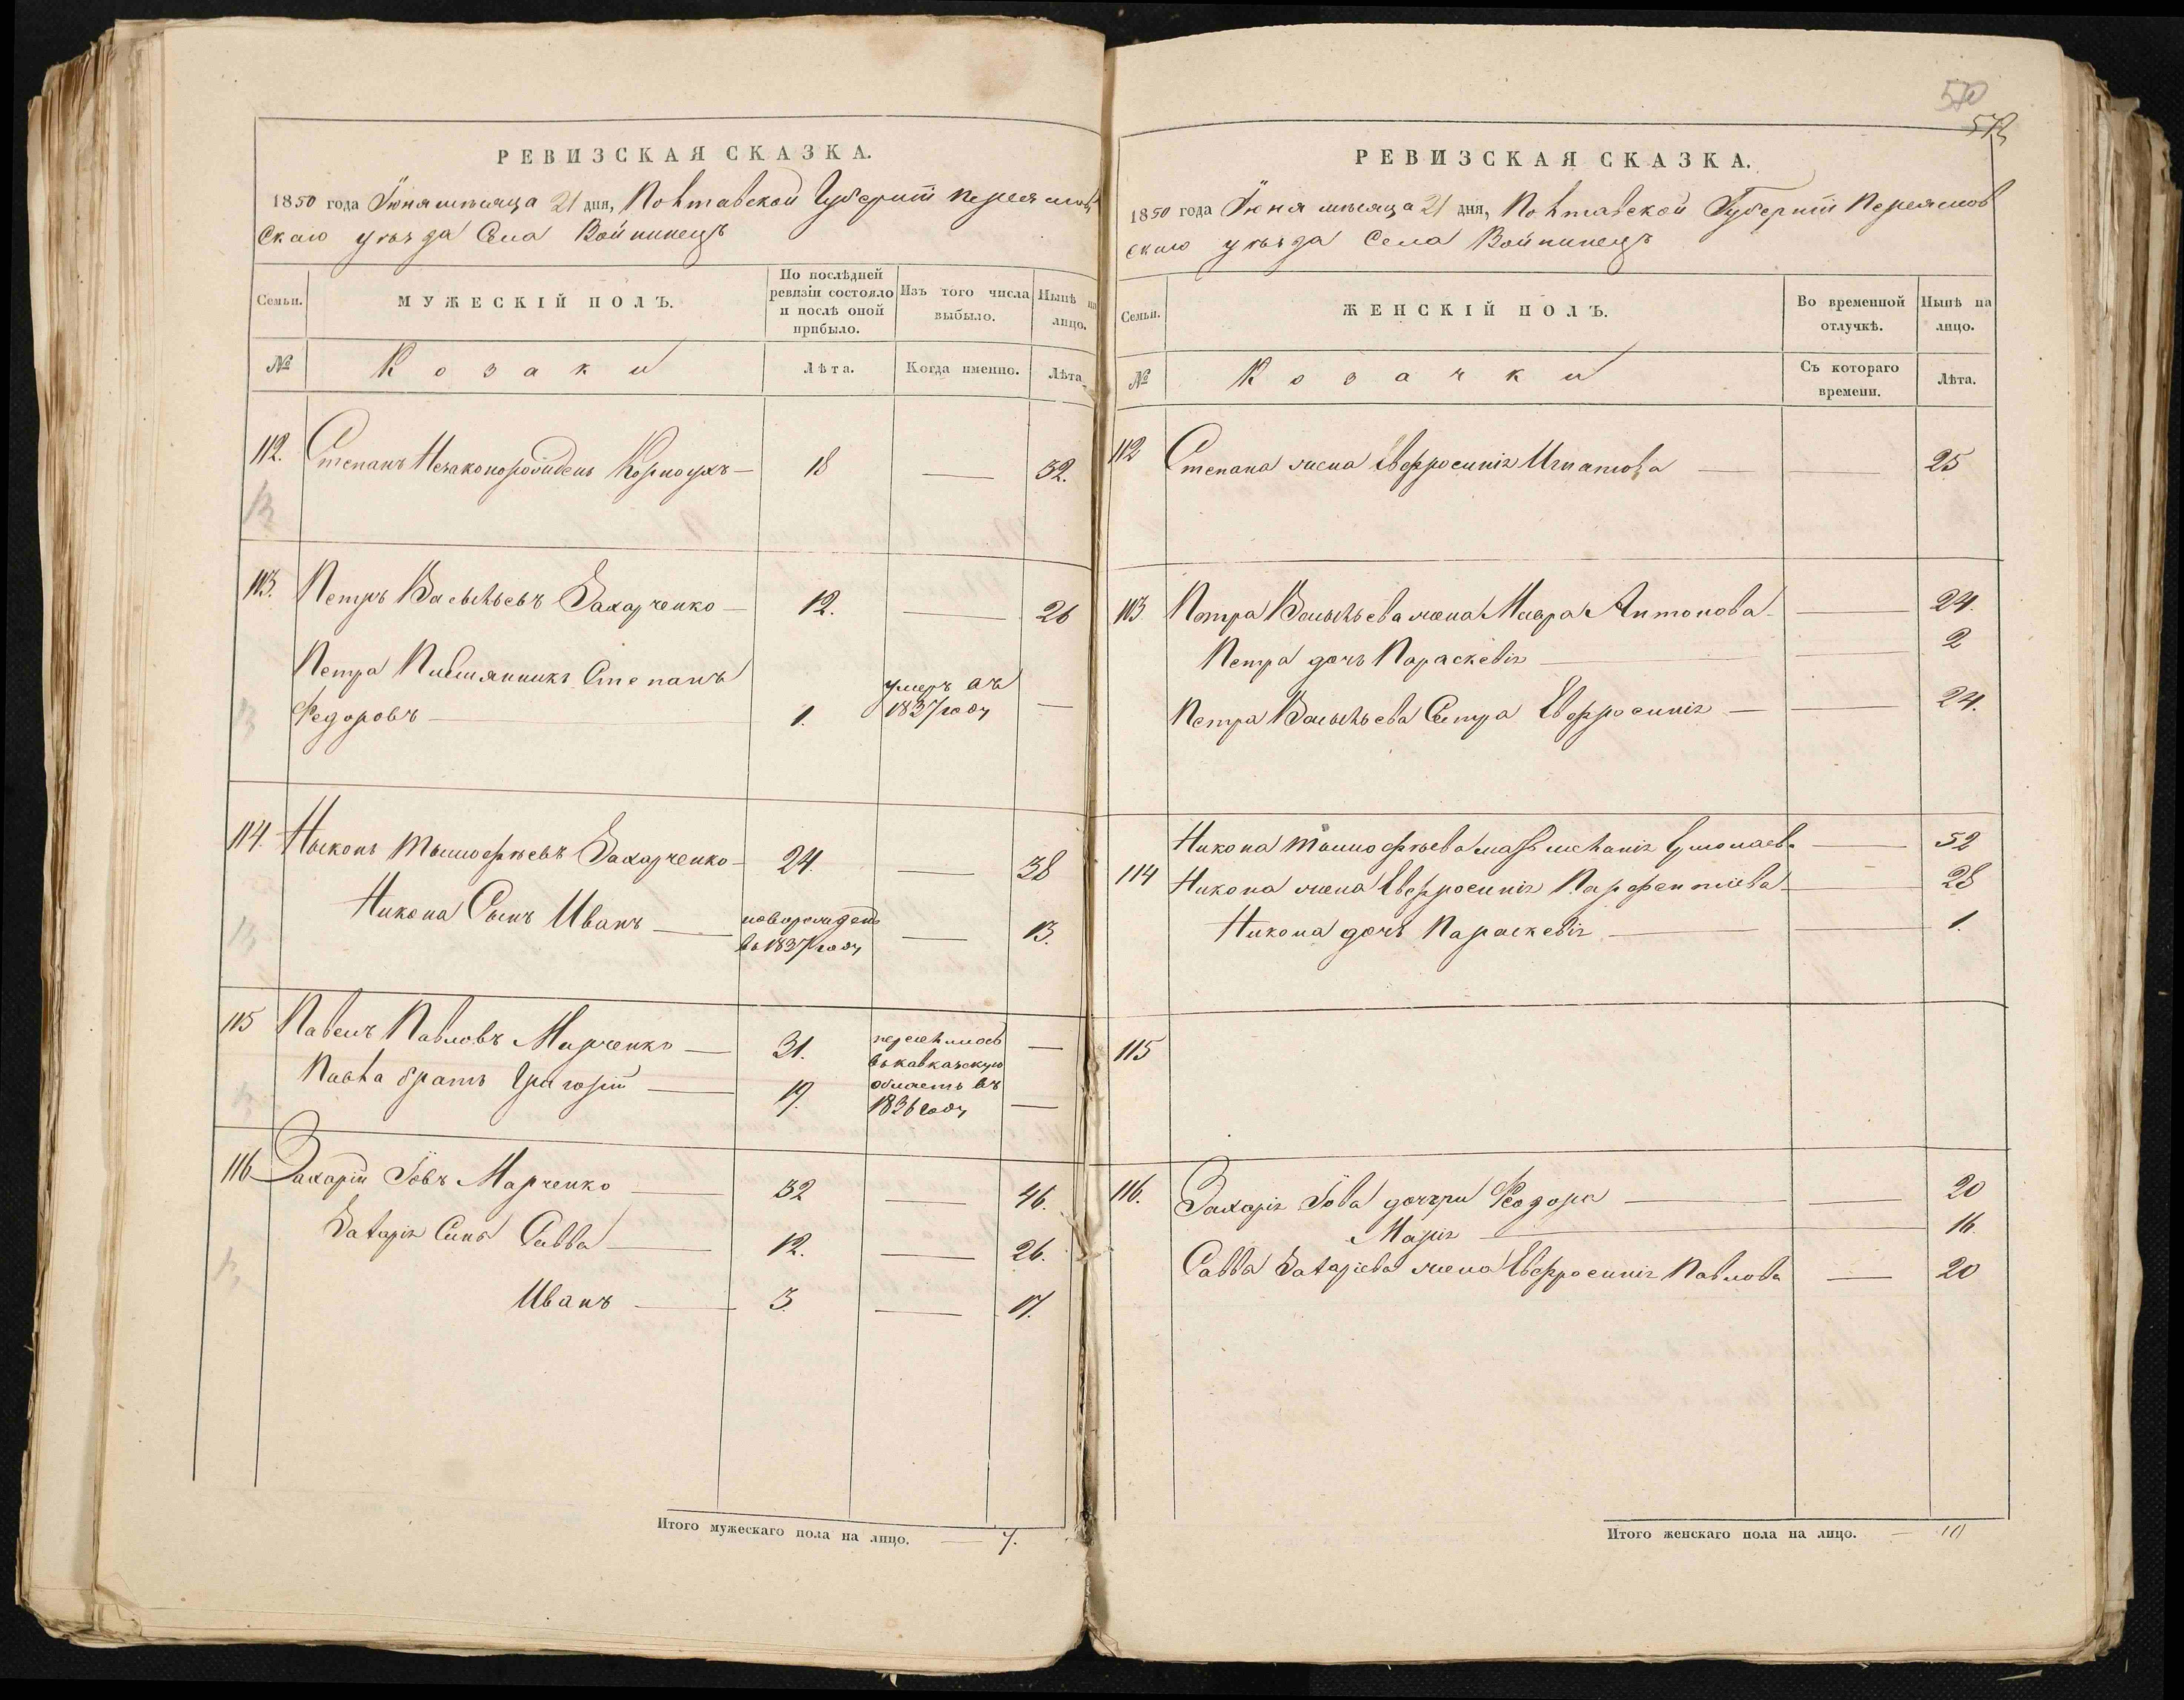 РЕВИЗСКАЯ СКАЗКА.
1850 года Іюня мѣсяца 21 дня, Полтавской Губерніи Переяслов
скаго уѣзда Села Войнинецъ
Семьи.
МУЖЕСКІЙ ПОЛЪ.
По послѣдней ревизіи состояло и послѣ оной прибыло.
Изъ того числа выбыло.
Нынѣ на лицо.
№
Козаки
Лѣта.
Когда именно.
Лѣта.
112. Степанъ Незаконорожденъ Корноухъ — 18 — 32.
113. Петръ Васильевъ Захарченко — 12. — 26
Петра Племянникъ Степанъ
Федоровъ — 1. умеръ въ 1837 году —
114. Никонъ Тимофѣевъ Захарченко — 24. — 38
Никона Сынъ Иванъ — новорожденъ въ 1837 году — 13.
115 Павелъ Павловъ Марченко — 31. переселился —
въ кавказскую
Павла братъ Григорій — 19. область въ
1836 году —
116 Захарій Іовъ Марченко — 32 — 46.
Захарія Сынъ Савва — 12. — 26.
Иванъ — 3. — 17.
Итого мужескаго пола на лицо. — 7.
570
РЕВИЗСКАЯ СКАЗКА.
1850 года Іюня мѣсяца 21 дня, Полтавской Губерніи Переяслов
скаго уѣзда Села Войнинецъ
Семьи.
ЖЕНСКІЙ ПОЛЪ.
Во временной отлучкѣ.
Нынѣ на лицо.
№
Козачки
Съ котораго времени.
Лѣта.
112 Степана жена Евфросинія Игнатова — — 25
113 Петра Васильева жена Мавра Антонова — 24.
Петра дочь Параскевія — — 2
Петра Васильева Сестра Евфросинія — — 24.
Никона Тимофѣева мать Меланія — 52
114 Никона жена Евфросинія Парфентіева — 28
Никона дочь Параскевія — — 1.
115
116. Захарія Іова дочери Феодора — — 20
Марія — 16.
Савва Захаріева жена Евфросинія Павлова — 20
Итого женскаго пола на лицо. — 10